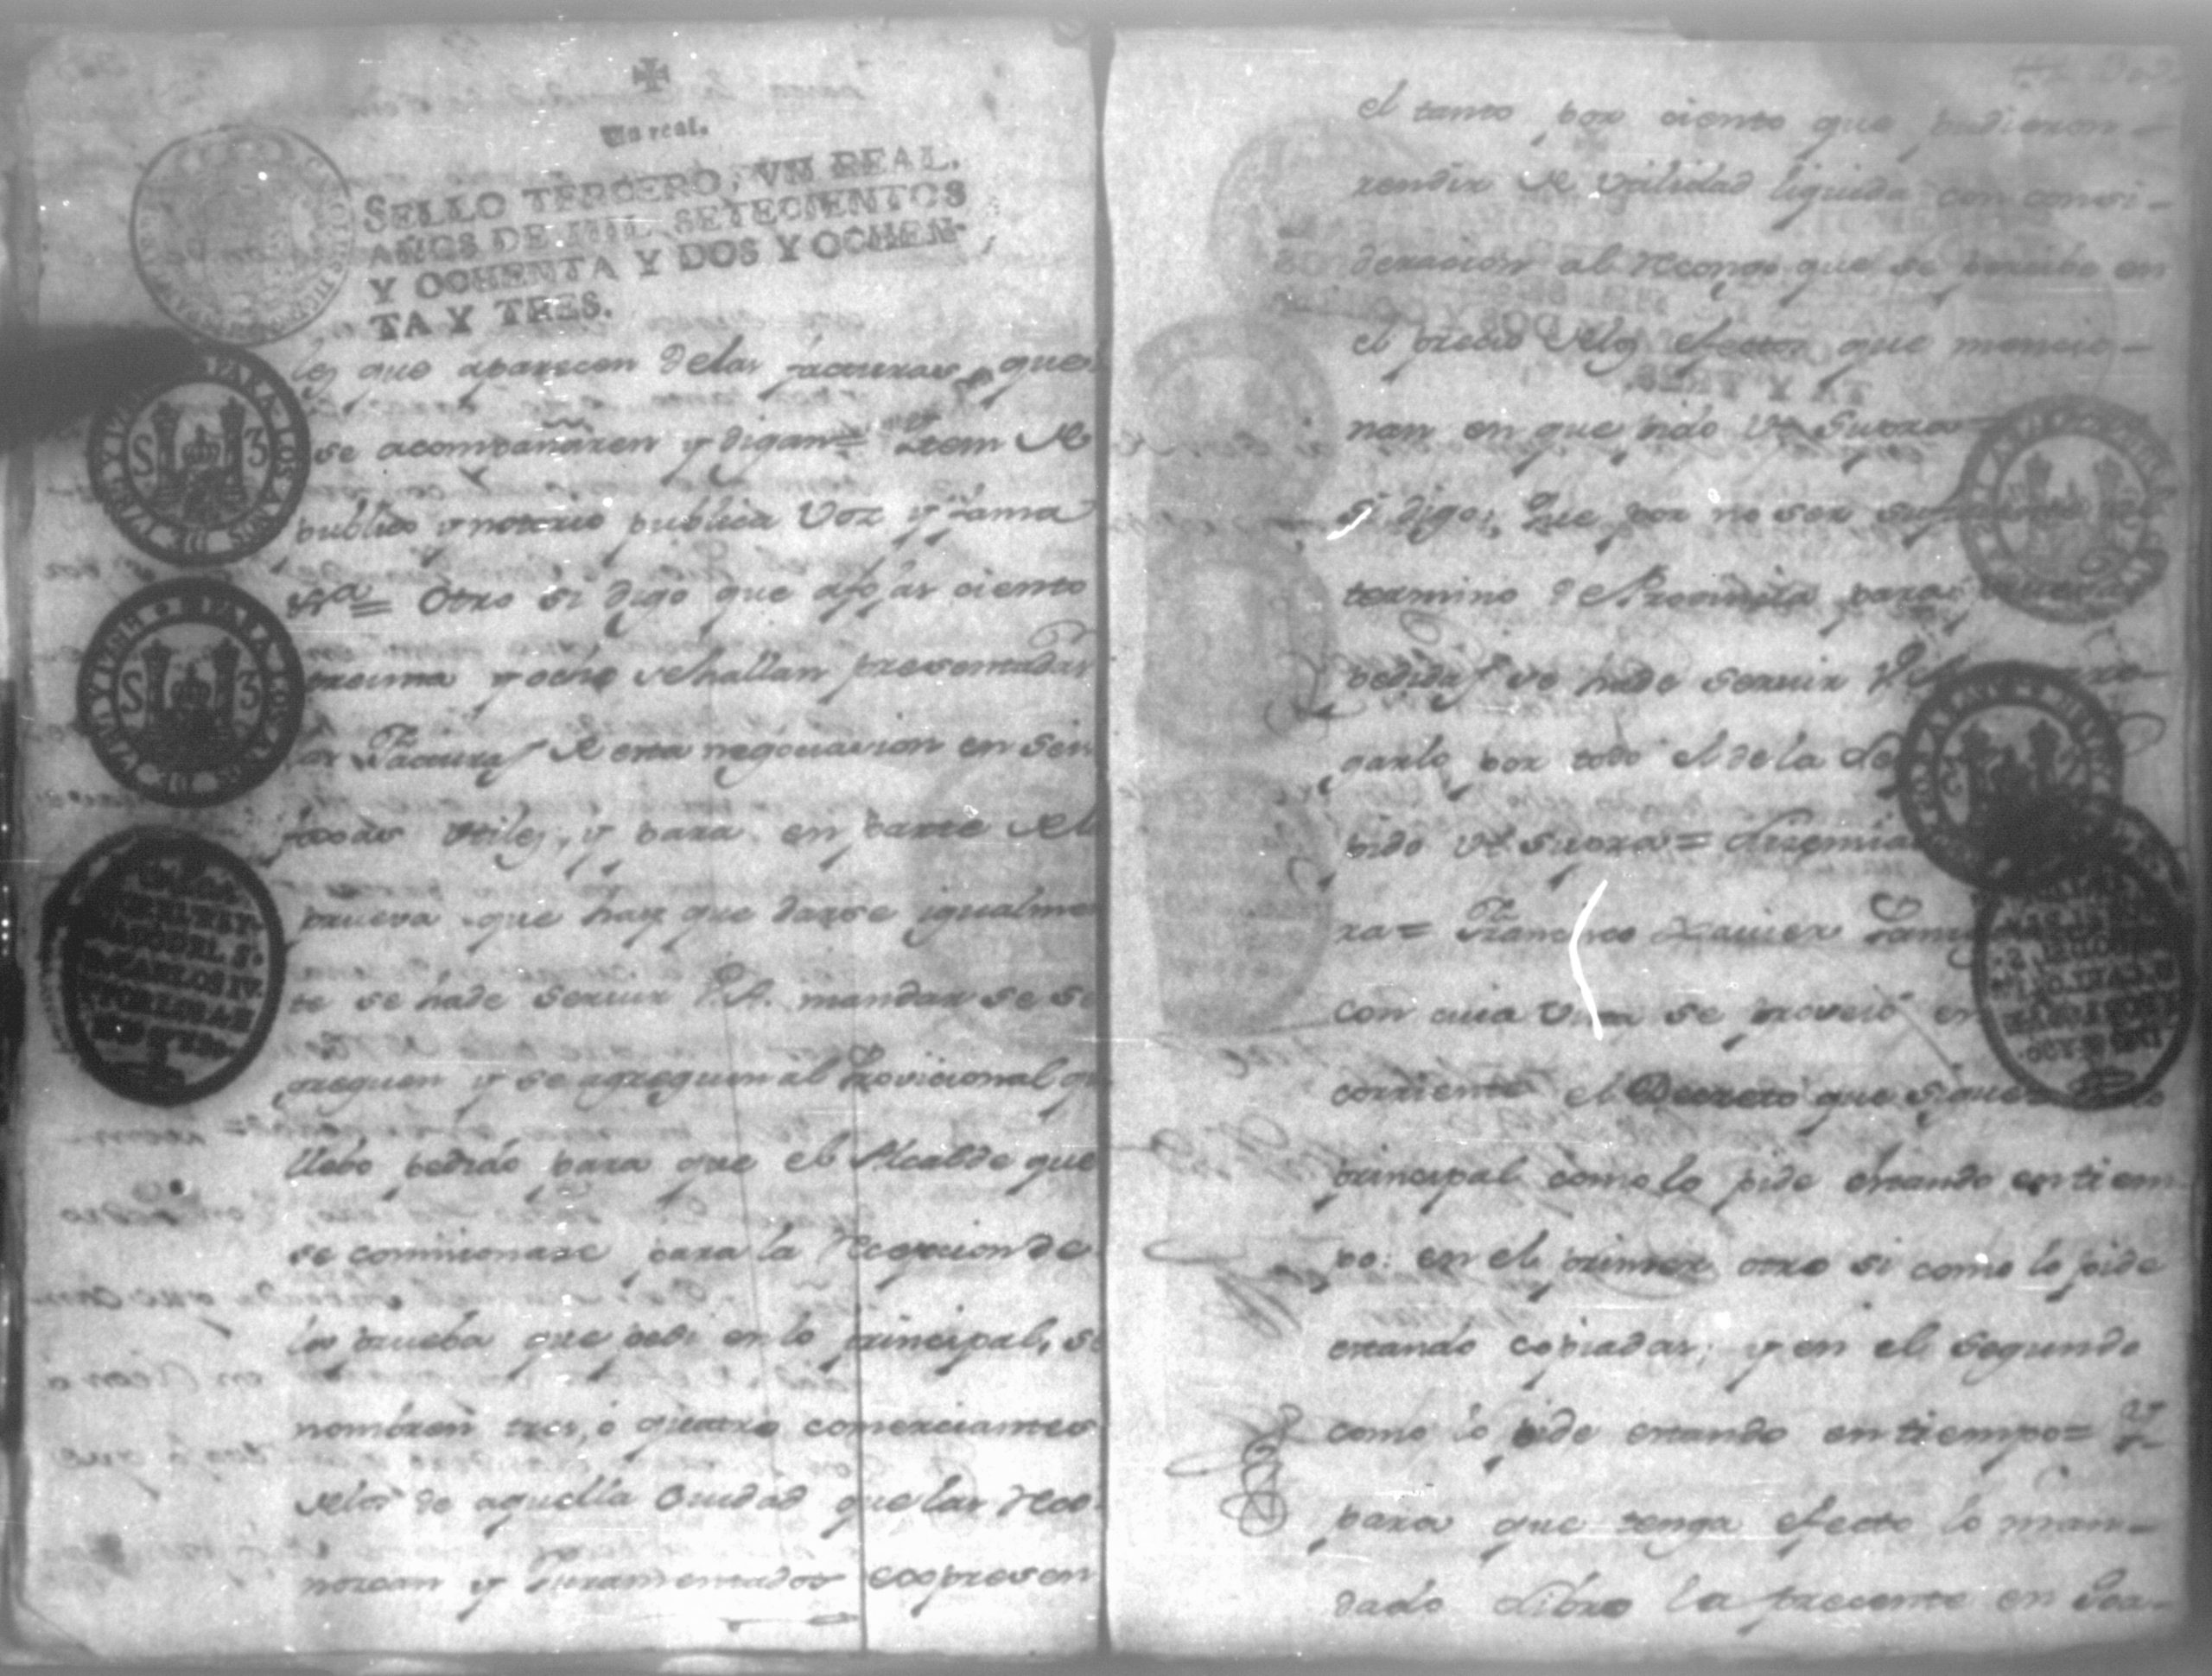 Un real.
SELLO TERCERO, VN REAL,
AÑOS DE MIL SETECIENTOS
Y OCHENTA Y DOS Y OCHEN-
TA Y TRES.
les que aparecen delas facturas, que
se acompañaren y digan= Item de
publico y notorio publica Voz y fama
Otro si digo que afojas ciento
treinta y ocho se hallan presentadas
las Facturas de esta negociacion en seis
foxas utiles, y para en parte de la
prueva que hay que darse igualmen
te se hade servir V.A. mandar se se
greguen y se agreguen al Provicional q
llebo pedido para que el Alcalde que
se comicionare para la Recepcion de
la prueba que pedi en lo principal, se
nombren tres, o quatro comerciantes
delos de aquella Ciudad que las reco
noscan y Juramentados expresen
el tanto por ciento que pudieron
rendir de utilidad liquida con consi-
deracion al Recargo que se percibe en
el precio delos efectos que mencio-
nan en que pido Vt Supra=
si digo; Que por no ser
termino de Provincia para
pedida se hade servir
garlo por todo el de la Le
pido vt supra=
ra= Francisco Xavier
con cuia Vista se proveió en
corriente el Decreto que sigue
principal como lo pide estando en tiem
po: en el primer otro si como lo pide
estando copiadas; y en el segundo
como lo pide estando en tiempo=
para que tenga efecto lo man-
dado Libro la presente en
S 3
PARA LOS AÑOS DE
S 3
PARA LOS AÑOS DE